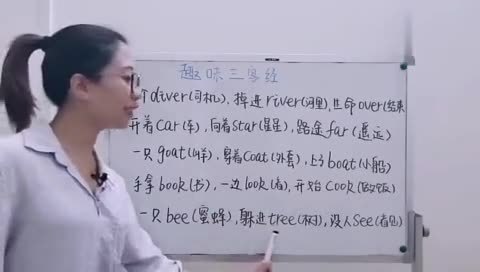 趣味三字经
个driver(司机), 掉进river(河里), 生命over(结束
开着car(车), 向着star(星星), 路途far(遥远)
一只goat(山羊), 穿着coat(外套), 上了boat(小船)
手拿book(书), 一边look(看), 开始cook(做饭)
一只bee(蜜蜂), 躲进tree(树), 没人see(看见)